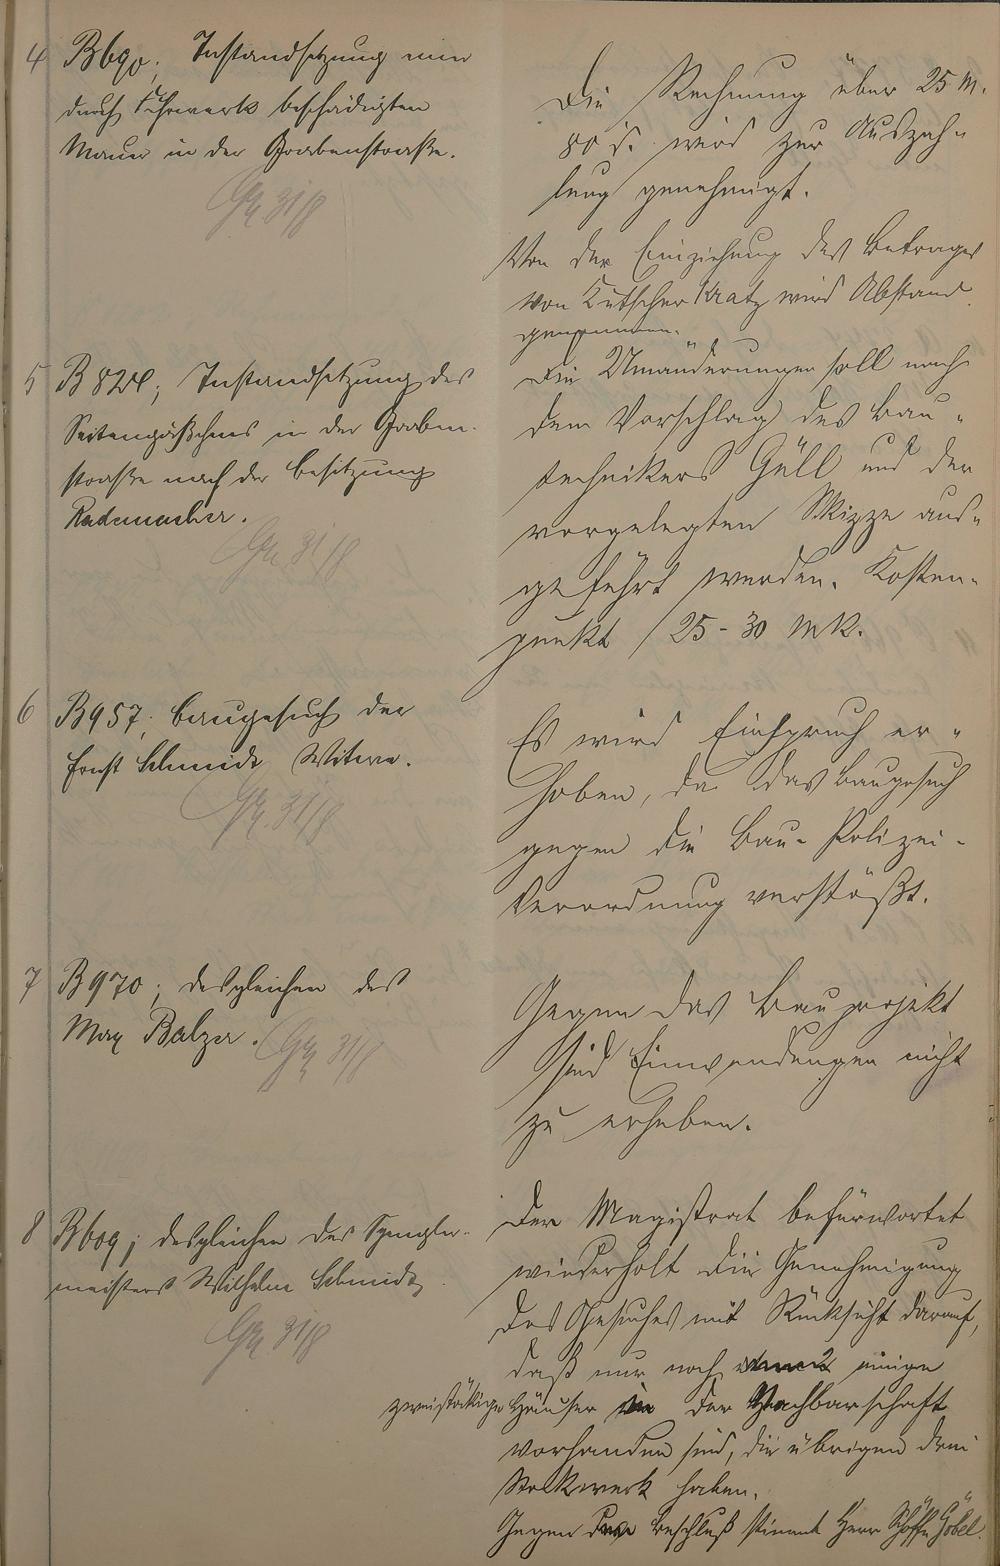 4 B 690; Instandsetzung einer
durch Fuhrwerk beschädigten
Mauer in der Grabenstraße.
31/8
Die Rechnung über 25 M.
80 d. wird zur Auszah-
lung genehmigt.
Von der Einziehung des Betrages
von Kutscher Kratz wird Abstand
genommen.
5 B 828; Instandsetzung des
Seitengäßchens in der Graben-
straße nach der Besitzung
Rademacher.
31/8
Die Umänderungen soll nach
dem Vorschlag des Bau-
technikers Güll und der
vorgelegten Skizze aus-
geführt werden. Kosten-
punkt 25-30 Mk.
6 B 957; Baugesuch der
Ernst Schmidt Witwe.
31/8
Es wird Einspruch er-
hoben, da das Baugesuch
gegen die Bau-Polizei-
Verordnung verstößt.
7 B 970; desgleichen des
Max Balzer.
31/8
Gegen das Bauprojekt
sind Einwendungen nicht
zu erheben.
8 B 609; desgleichen des Spengler-
meisters Wilhelm Schmidt
31/8
Der Magistrat befürwortet
wiederholt die Genehmigung
des Gesuches mit Rücksicht darauf,
daß nur noch einige
zweistöckige Häuser in der Nachbarschaft
vorhanden sind, die übrigen drei
Stockwerk haben.
Gegen den Beschluß stimmt Herr Schöffe Göbel.